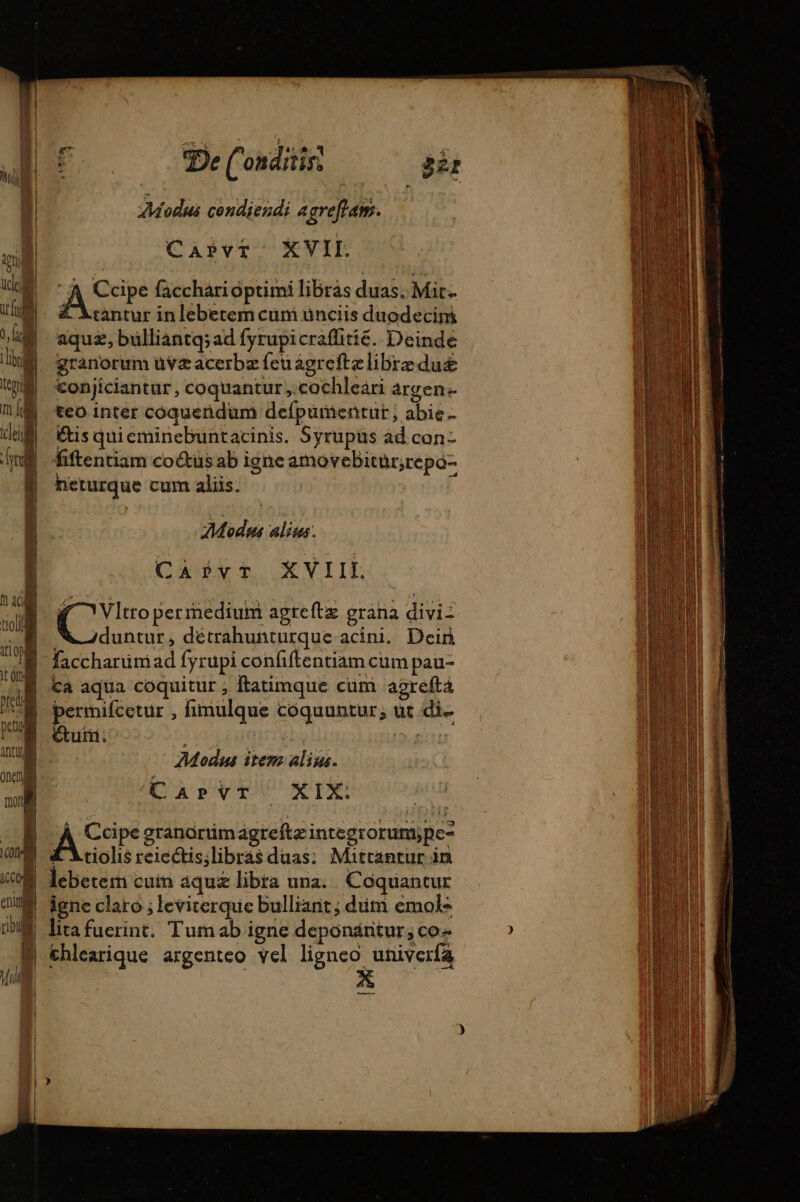 De Conditis. 321
Modus condiendi agreſtam.
CAPVT XVII.
ACcipe ſacchari optimi libras duas. Mit-
tantur in lebetem cum unciis duodecim
aquæ, bulliantq; ad ſyrupi craſſitié. Deinde
granorum uvæ acerbæ ſeu agreſtæ libræ duæ
conjiciantur, coquantur, cochleari argen-
teo inter coquendum deſpumentur, abje-
ctis qui eminebunt acinis. Syrupus ad con-
ſiſtentiam coctus ab igne amovebitur, repo-
neturque cum aliis.
Modus alius.
CAPVT XVIII.
CVltro per medium agreſtæ grana divi-
duntur, detrahunturque acini. Dein
ſaccharum ad ſyrupi conſiſtentiam cum pau-
ca aqua coquitur, ſtatimque cum agreſta
permiſcetur, ſimulque coquuntur, ut di-
ctum.
Modus item alius.
CAPVT XIX.
ACcipe granorum agreſtæ integrorum, pe-
tiolis reiectis, libras duas. Mittantur in
lebetem cum aquæ libra una. Coquantur
igne claro; leviterque bulliant; dum emol-
lita fuerint. Tum ab igne deponantur, co-
chlearique argenteo vel ligneo univerſa
X